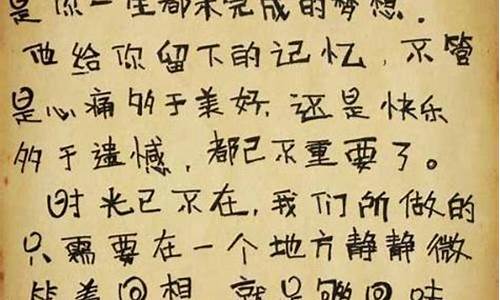 是你一生都未完成的梦想.
他给你留下的记忆,不管
是心痛多于美好,还是快乐
多于遗憾,都已不重要了。
时光已不在,我们所做的
只需要在一个地方静静微
笑着回想,就是够回味